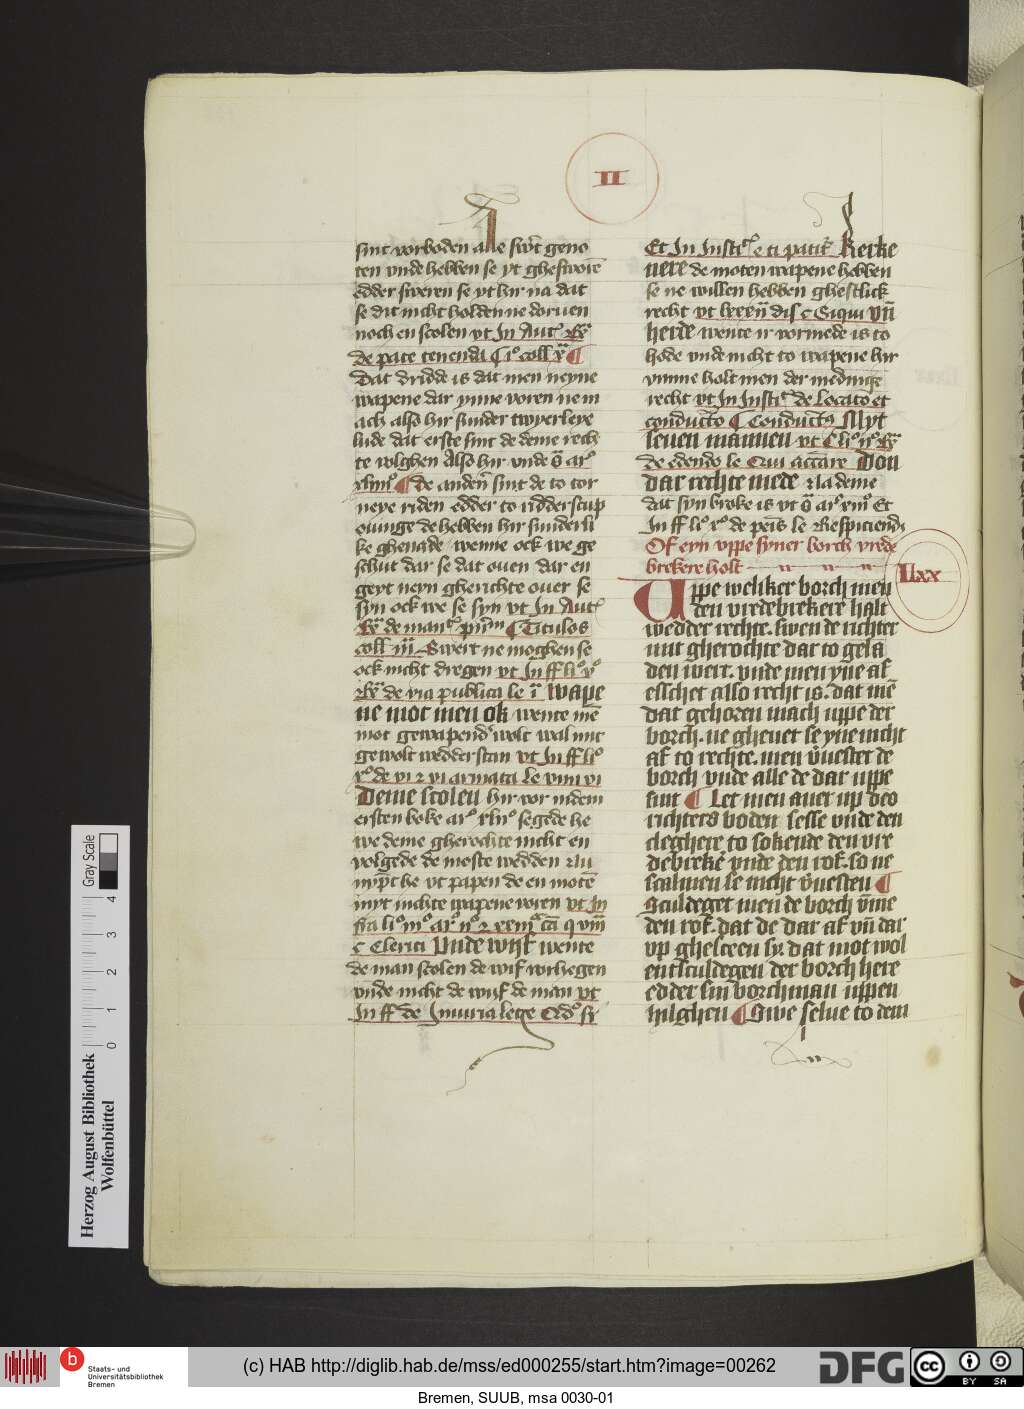 II
sint vorboden alle swert geno
ten vnde hebben se yt ghesworē
edder sweren se yt hir na dat
se dit nicht holden ne doruen
noch en scolen vt In Aut͛
de pace tenenda coll
Dat dridde is dat men neyne
wapene dar ynne voren ne m
ach also hir sunder twyerleye
lude dat erste sint de deme rech
te volghen Also hir vnde
de anderē sint de to tor
neye riden edder to ridderscup
ouinge de hebben hir sunderli
ke ghenade wenne ock we ge
schut dar se dat ouen dar en
geyt neyn gherichte ouer se
syn ock we se syn vt In Aut͛
de Titulos
coll iii Swert ne moghen se
ock nicht dregen vt In ff li° v°
de via publica le i Wape
ne mot men ok wente mē
mot gewapend wolt wal mit
gewolt wedderstan vt In ff li°
de vi et vi armata le vim vi
Deme scolen hir vor in dem
ersten boke ar° segede he
we deme gherochte nicht en
volgede de moste wedden Nu
nyp̄t he vt papen de en motē
myt nichte wapene voren vt In
c Clerici Vnde wijf wente
de man scolen de wif vorhegen
vnde nicht de wijf de man vt
In ff de Iniuria lege
Et In Insti Kerke
nere de moten wapene hebben
se ne willen hebben ghestlick
recht vt dis c Siqui vn̄
heide wente ir vormede is to
hode vnde nicht to wapene hir
vmme holt men der medinge
recht vt In Insti de locato et
conducto Conductor Myt
seuen mannen vt
de edendo le Qui accusare Don
dar rechte mede Na deme
dat syn broke is vt Et
In ff li° de penis le Respiciend
Of eyn vppe syner borch vrede
brekere holt
Lxx
Uppe weliker borch men
den vredebrekere halt
wedder rechte. swen de richter
mit gherochte dar to gela
den wert. vnde men yne af
esschet also recht is. dat mē
dat gehoren mach uppe der
borch. ne gheuet se yne nicht
af to rechte. men v̄uestet de
borch vnde alle de dar uppe
sint Let men auer up des
richters boden sesse vnde den
cleghere to sokende den vre
debrekē vnde den rof. so ne
scal men se nicht v̄uesten
Sculdeget men de borch v̄me
den rof. dat de dar af vn̄ dar
vp ghesceen sy. dat mot wol
entsculdegen der borch here
edder sin borchman uppen
hilghen Swe selue to dem
Gray Scale
0 1 2 3 4
Herzog August Bibliothek
Wolfenbüttel
b
Staats- und
Universitätsbibliothek
Bremen
(c) HAB http://diglib.hab.de/mss/ed000255/start.htm?image=00262
DFG
cc BY SA
Bremen, SUUB, msa 0030-01